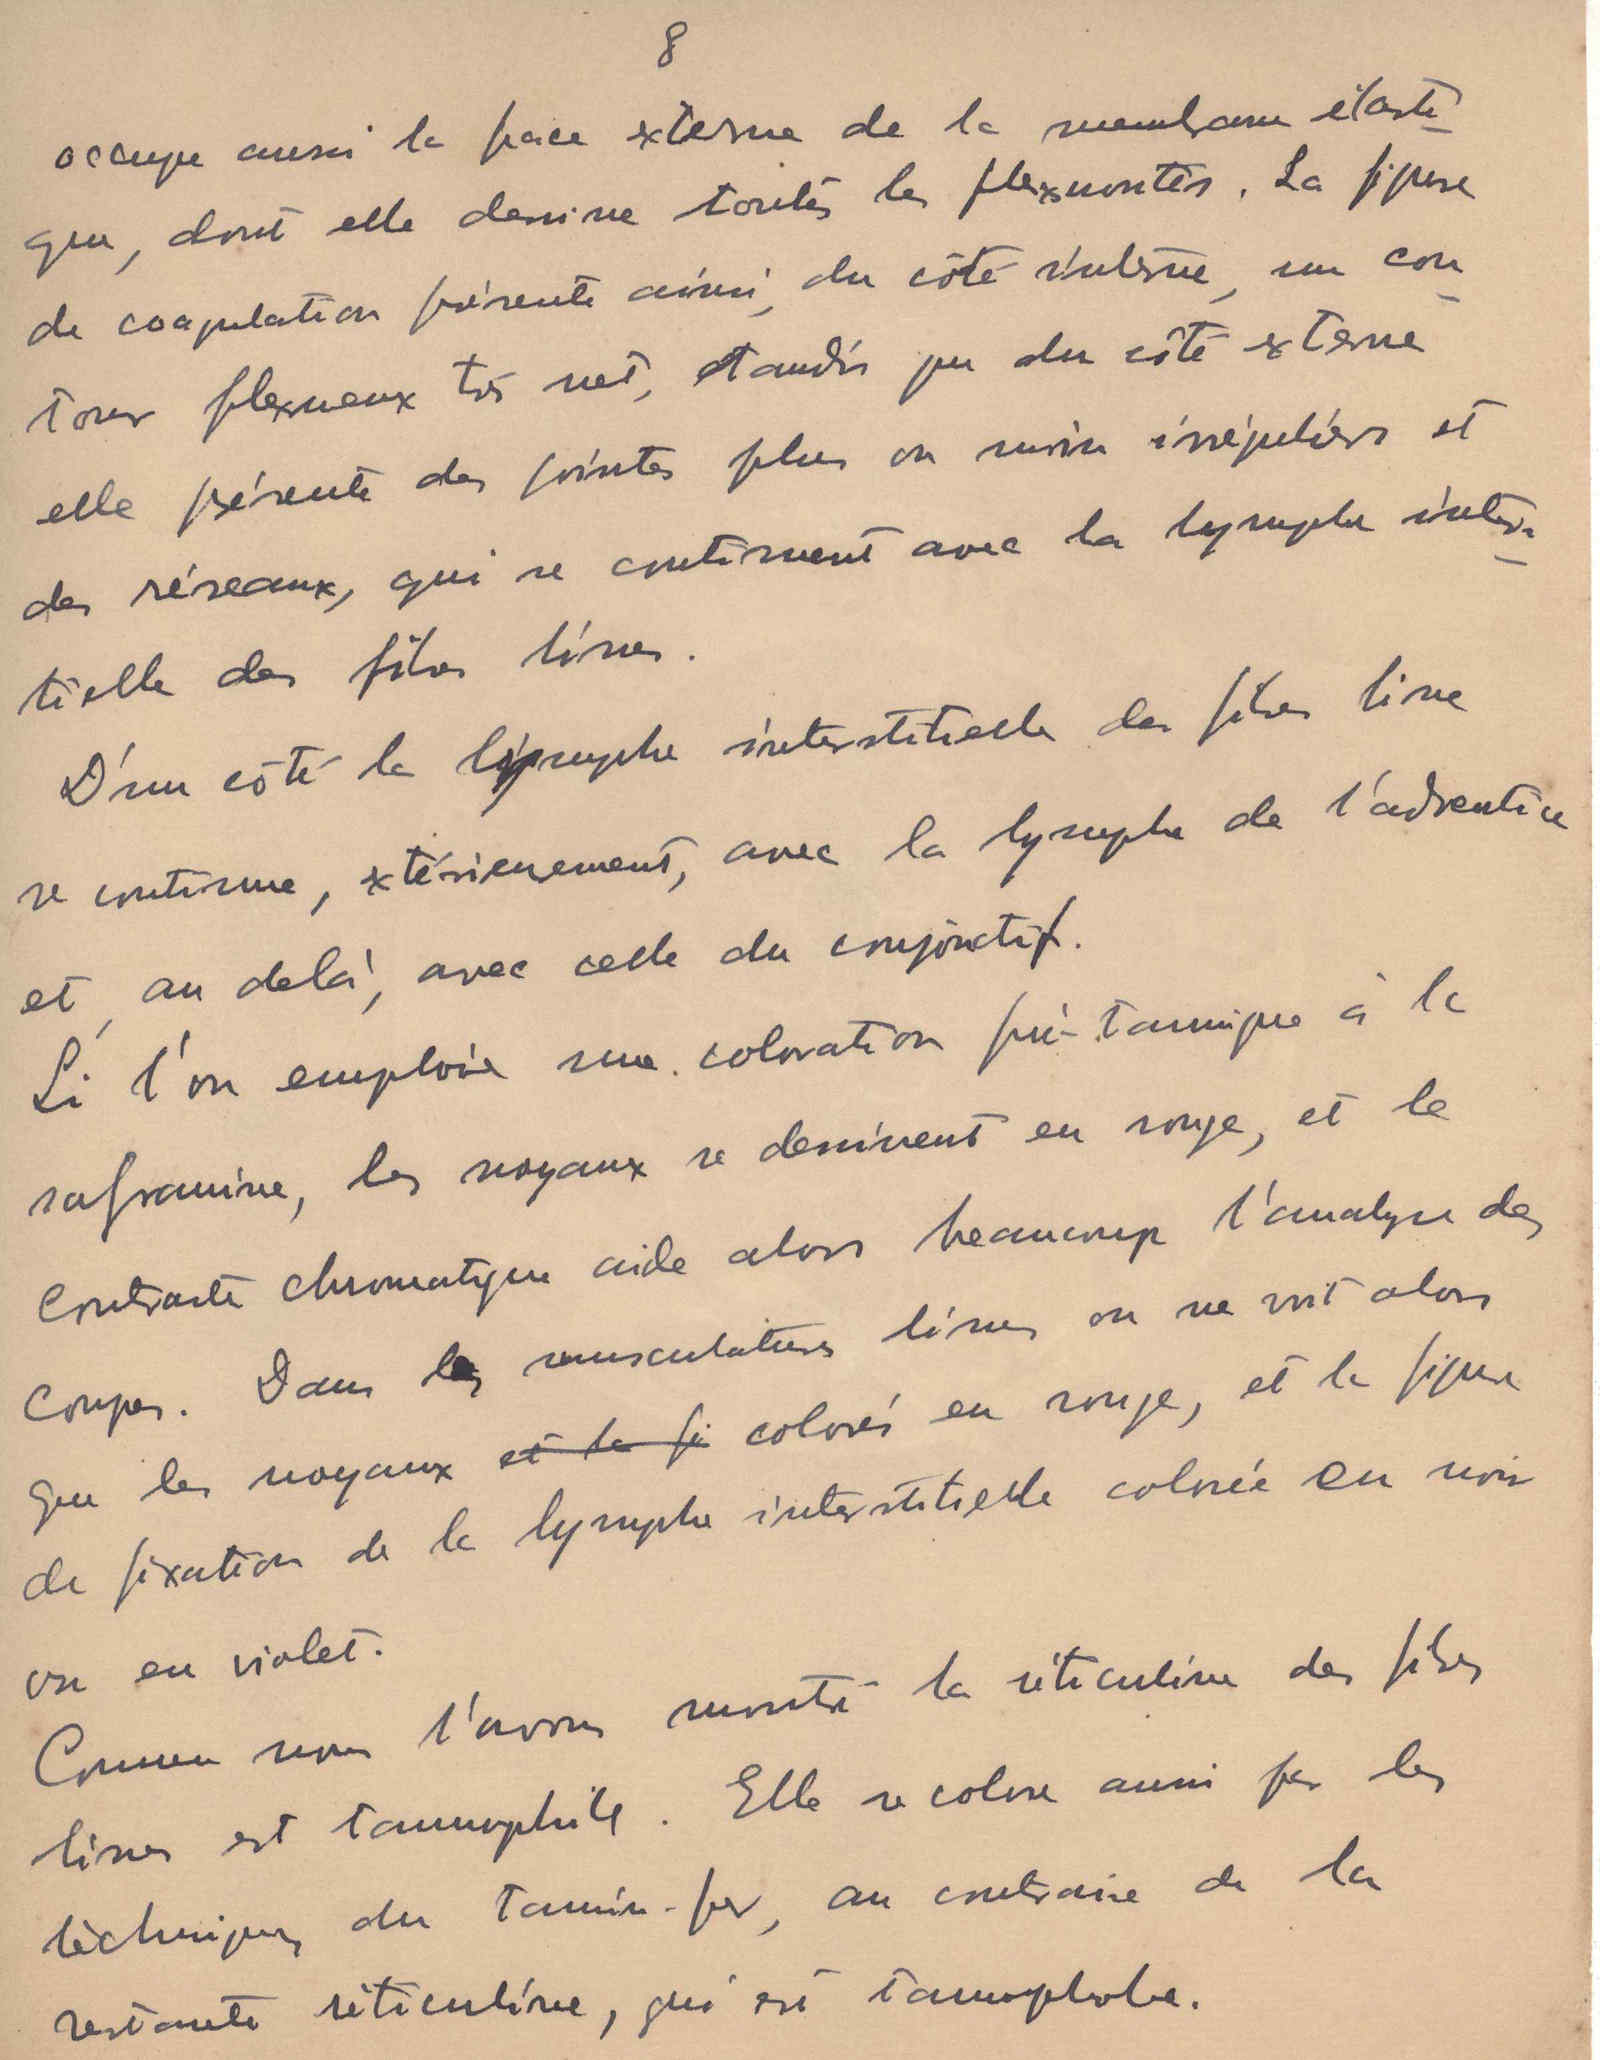 8
occupe aussi la face externe de la membrane élasti-
que, dont elle dessine toutes les flexuosités. La figure
de coagulation présente ainsi, du côté interne, un con-
tour flexueux très net, tandis que du côté externe
elle présente des pointes plus ou moins irréguliers et
des réseaux, qui se continuent avec la lymphe inters-
tielle des fibres lisses.
D'un côté la lymphe interstitielle des fibres lisse
se continue, extérieurement, avec la lymphe de l'adventice
et, au delà, avec celle du conjonctif.
Si l'on emploie une coloration pré-tannique à la
safranine, les noyaux se dessinent en rouge, et le
contraste chromatique aide alors beaucoup l'analyse des
coupes. Dans les musculatures lisses on ne voit alors
que les noyaux et la fi colorés en rouge, et la figure
de fixation de la lymphe interstitielle colorée en noir
ou en violet.
Comme nous l'avons montré la réticuline des fibres
lisses est tannophile. Elle se colore aussi par les
techniques du tannin-fer, au contraire de la
restante réticuline, qui est tannophobe.